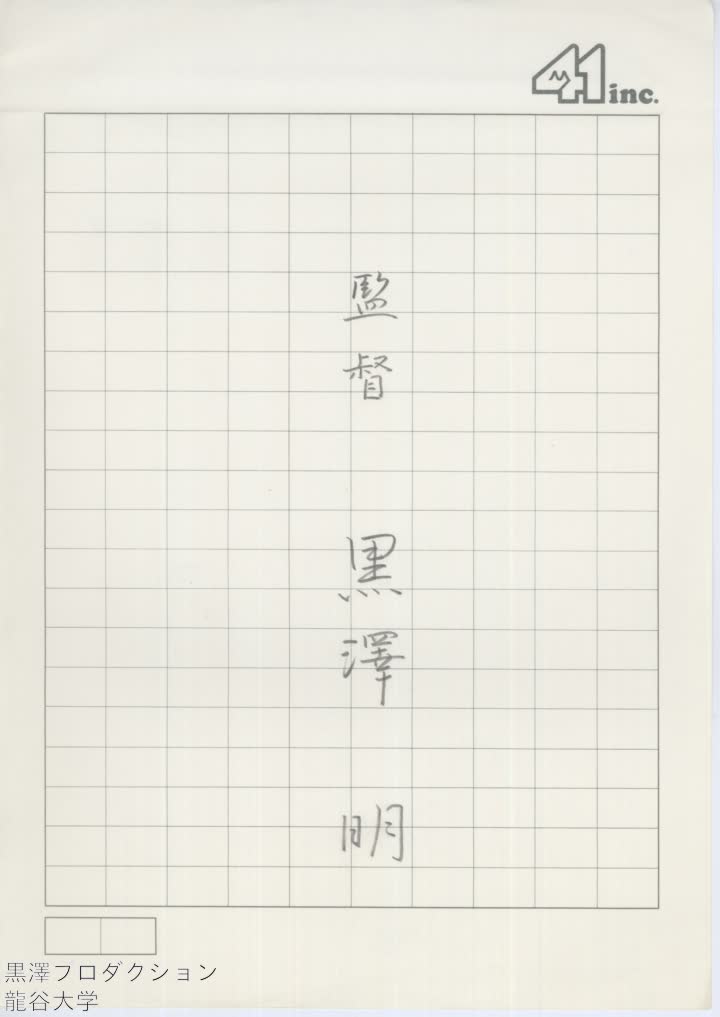 41 inc.
監督 黒澤 明
黒澤フロダクション
龍谷大学